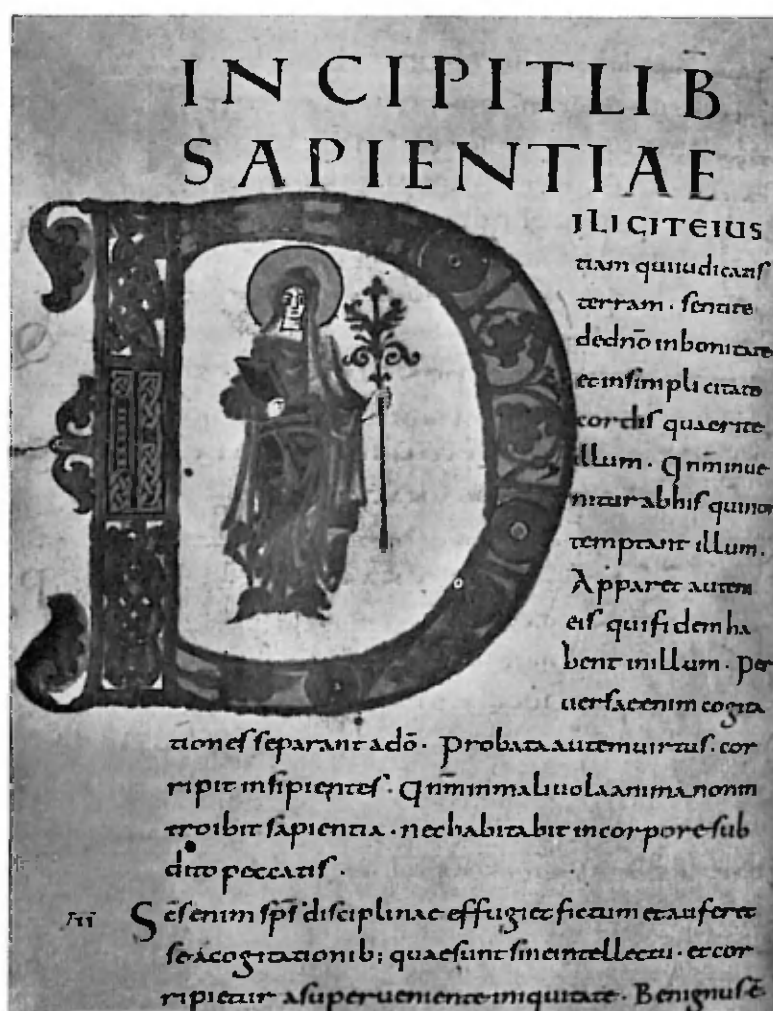 INCIPITLIB
SAPIENTIAE
DILICITEIUS
tiam quiiudicatis
terram · sentite
dedño inbonitate
etinsimplicitate
cordis quaerite
illum · Qnm̄inue
niturabhis quinon
temptant illum.
Apparet autem
eis quifidem ha
bent inillum · per
uersaeenim cogita
tiones separant adō · probataautemuirtus · cor
ripit insipientes · Qnm̄inmaliuolaanimanonin
troibit sapientia · nechabitabit incorpore sub
dito peccatis ·
Scs̄enim sps̄ disciplinae effugiet fictum etauferet
seacogitationib; quaesuntsineintellectu · etcor
ripietur asuperueniente iniquitate · Benignusē